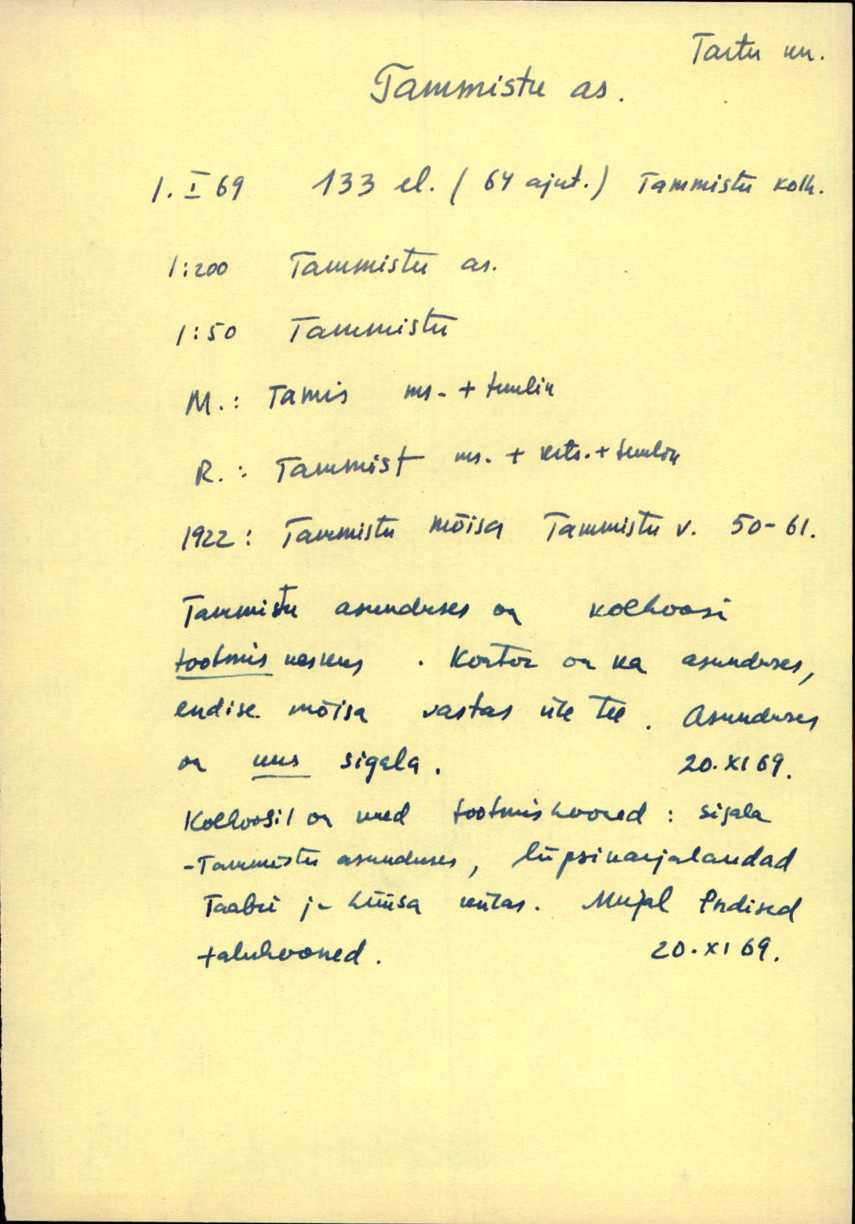 Tartu un.
Tammistu as.
1. I 69 133 el. (64 ajut.) Tammistu kolh.
1:200 Tammistu as.
1:50 Tammistu
M.: Tamis ms. + tuulik
R.: Tammist ms. + + tuulik
1922: Tammistu mõisa Tammistu v. 50-61.
Tammistu asunduses on kolhoosi
tootmis keskus. Kontor on ka asunduses,
endise mõisa vastas üle tee. Asunduses
on uus sigala. 20.XI 69.
Kolhoosil on uued tootmishooned: sigala
-Tammistu asunduses, lüpsikarjalaudad
Taabri ja külas. Mujal endised
taluhooned. 20.XI 69.